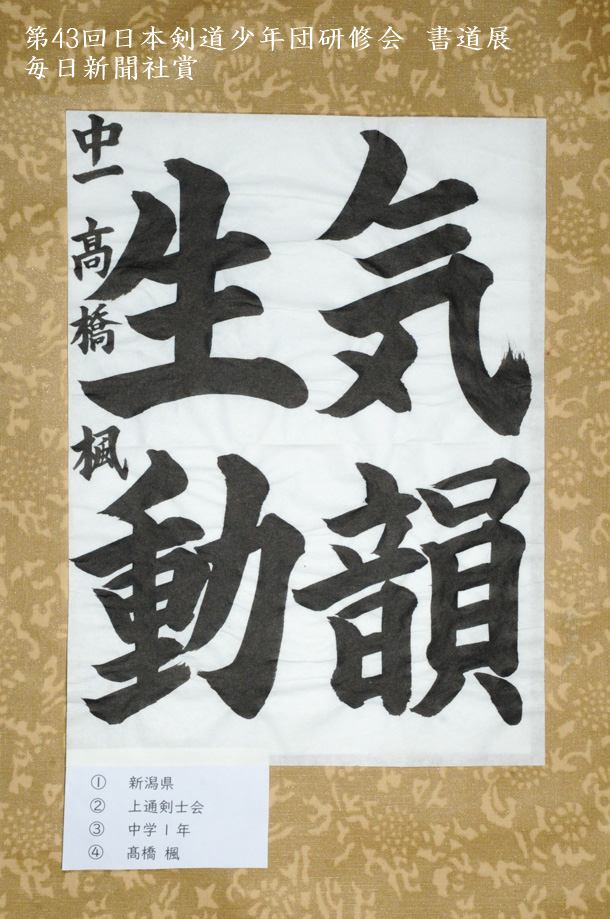 第43回日本剣道少年団研修会 書道展
毎日新聞社賞
気韻
生動
中一 髙橋 楓
① 新潟県
② 上通剣士会
③ 中学1年
④ 髙橋 楓